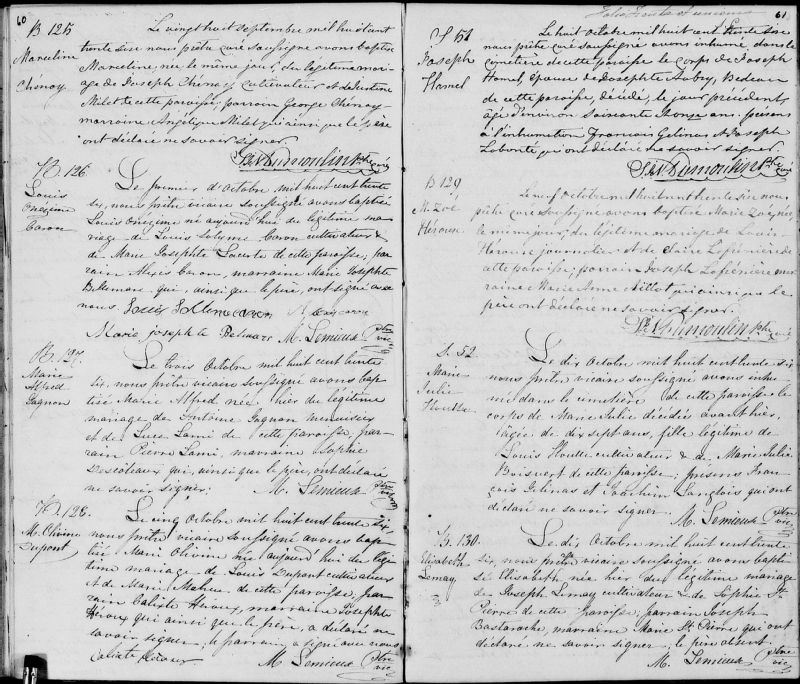 60
B 125
Marceline
Chenay
Le vingt huit septembre mil huit cent
trente six nous prêtre curé soussigné avons baptisé
Marceline, née le même jour, du légitime mari-
age de Joseph Chenay, cultivateur et de Justine
Milet de cette paroisse; parrain George Chenay
marraine Angélique Milet qui ainsi que le père
ont déclaré ne savoir signer.
S. N. Dumoulin Ptre curé
B. 126
Louis
Onezime
Caron
Le premier d'Octobre mil huit cent trente
six, nous prêtre vicaire soussigné avons baptisé
Louis Onezime né aujourd'hui du légitime ma-
riage de Louis Solyme Caron cultivateur &
de Marie Josephte Lacerte de cette paroisse; par-
rain Alexis Caron, marraine Marie Josephte
Bellemare qui, ainsi que le père, ont signé avec
nous
Marie joseph te Belmare M. Lemieux Ptre vic.
B. 127.
Marie
Alfred
Gagnon
Le trois Octobre mil huit cent trente
six, nous prêtre vicaire soussigné avons bap-
tisé Marie Alfred née hier du légitime
mariage de Antoine Gagnon Menuisier
et de Luce Lami de cette paroisse, par-
rain Pierre Lami, marraine Sophie
Descôteaux qui, ainsi que le père, ont déclaré
ne savoir signer. M. Lemieux Ptre vic.
B. 128.
M. Olivine
Dupont
Le cinq Octobre mil huit cent trente six
nous prêtre vicaire soussigné avons bap-
tisé Marie Olivine née aujourd'hui du légi-
time mariage de Louis Dupont cultivateur
et de Marie Maheu de cette paroisse; par-
rain Calixte Héroux, marraine Josephte
Héroux qui ainsi que le père, a déclaré ne
savoir signer; le parrain a signé avec nous
M. Lemieux Ptre vic.
61
S 51
Joseph
Hamel
Le huit Octobre mil huit cent trente six
nous prêtre curé soussigné avons inhumé dans le
cimetière de cette paroisse le corps de Joseph
Hamel, époux de Josephte Aubry, Bedeau
de cette paroisse, décédé, le jour précédent,
âgé d'environ soixante onze ans. présens
à l'inhumation François Gelinas et Joseph
Labonté qui ont déclaré ne savoir signer.
S. N. Dumoulin Ptre curé
B 129
M. Zoé
Hérouse
Le neuf Octobre mil huit cent trente six nous
prêtre curé soussigné avons baptisé Marie Zoé, née
le même jour, du légitime mariage de Louis
Hérouse journalier et de Claire Lafrénière de
cette paroisse; parrain Joseph Lafrénière mar-
raine Marie Anne Millet qui ainsi que le
père ont déclaré ne savoir signer.
S. N. Dumoulin Ptre curé
S. 52.
Marie
Julie
Le dix Octobre mil huit cent trente six
nous prêtre vicaire soussigné avons inhu-
mé dans le cimetière de cette paroisse le
corps de Marie Julie décédée avant hier,
âgée de dix sept ans, fille légitime de
Louis Houlle cultivateur & de Marie Julie
Boisvert de cette paroisse; présens Fran-
çois Gelinas et Joachim Langlois qui ont
déclaré ne savoir signer. M. Lemieux Ptre vic.
B. 130.
Elizabeth
Lemay
Le dix Octobre mil huit cent trente
six, nous prêtre vicaire soussigné avons bapti-
sé Elizabeth née hier du légitime mariage
de Joseph Lemay cultivateur & de Sophie St
Pierre de cette paroisse; parrain Joseph
Bastarache, marraine Marie St Pierre qui ont
déclaré ne savoir signer, le père absent.
M. Lemieux Ptre vic.